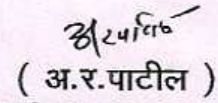 ( अ.र.पाटील )